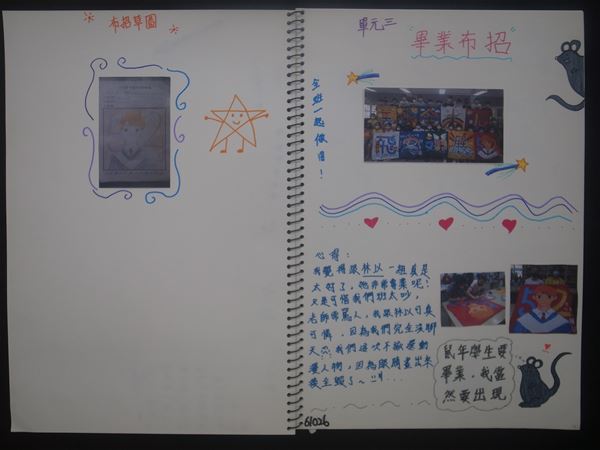 布招草圖
單元三
"畢業布招"
全班一起做
心得:
我覺得跟林以一組真是
太好了，她非常專業呢!
只是可惜我們班太吵，
老師常罵人，我跟林以可真
可憐，因為我們完全沒聊
天 我們這次不敢選動
漫人物，因為眼睛畫出來
後全毀了~
鼠年學生要
畢業，我當
然要出現
61026